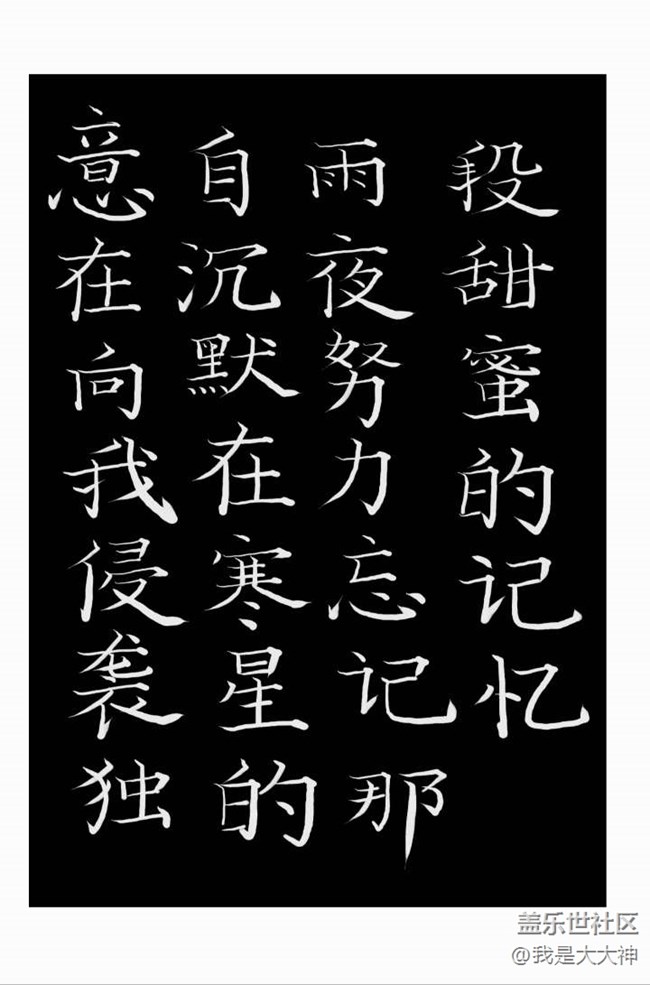 意在向我侵袭独
自沉默在寒星的
雨夜努力忘记那
段甜蜜的记忆
盖乐世社区
@我是大大神